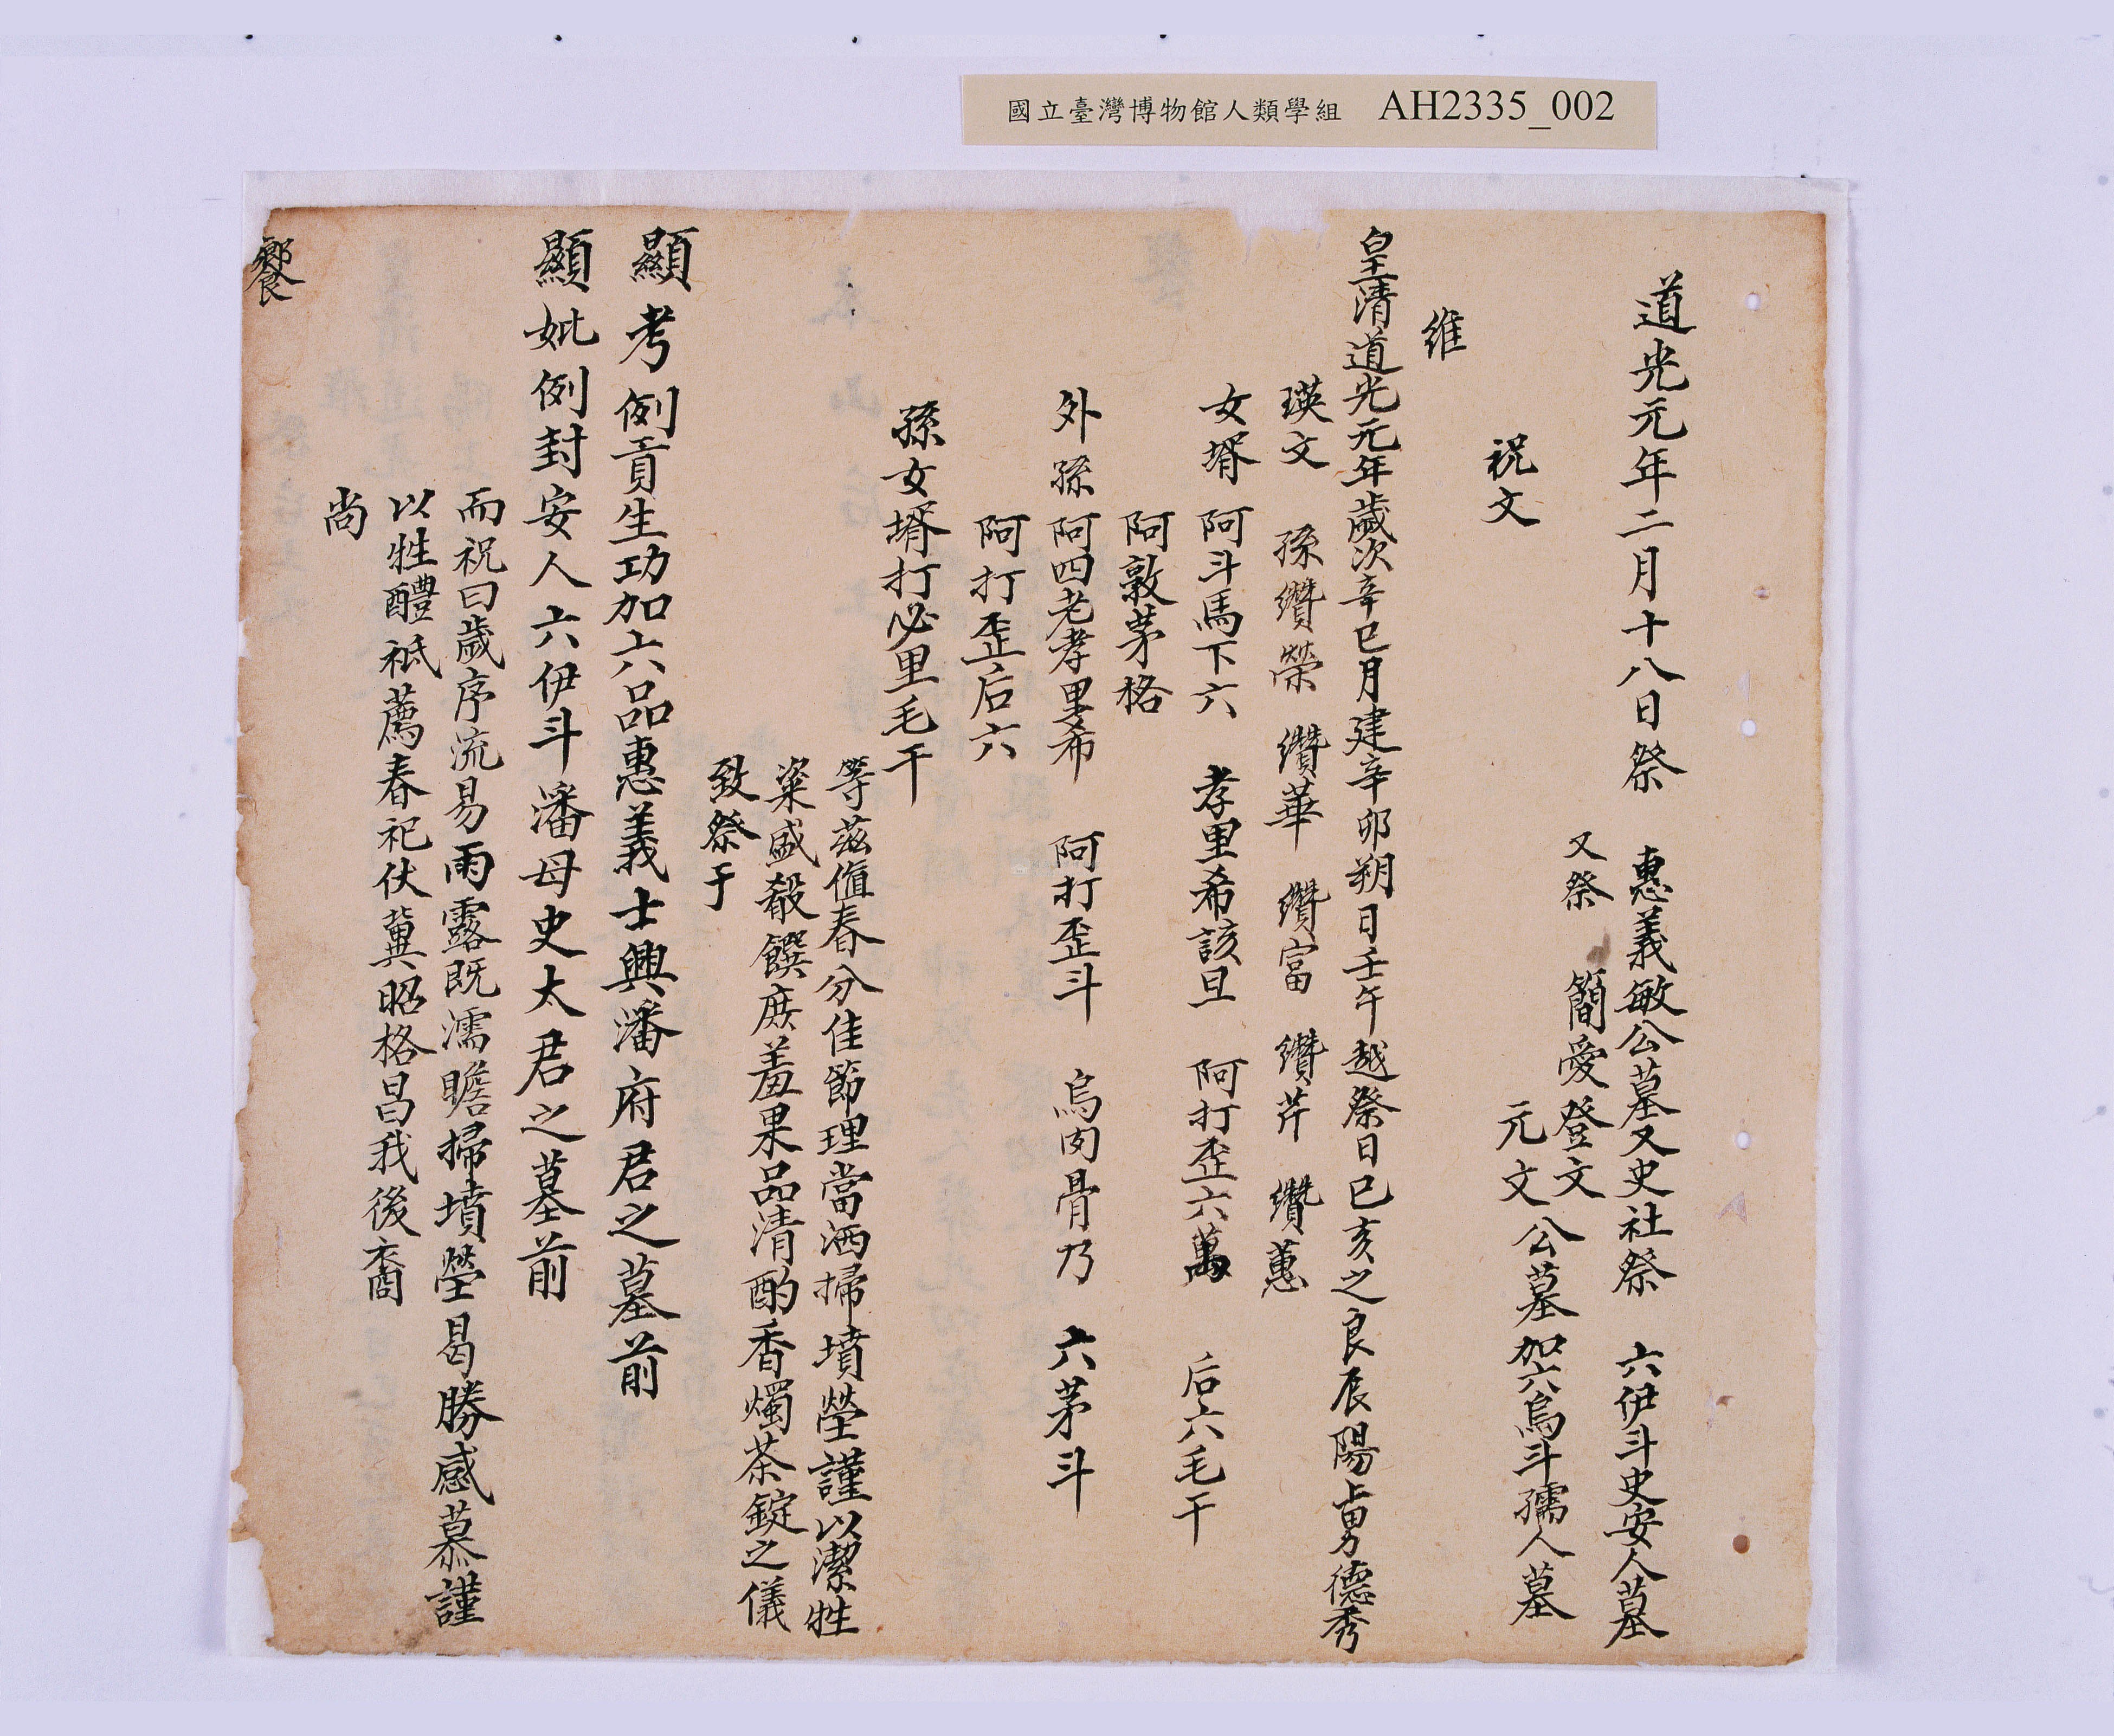 國立臺灣博物館人類學組 AH2335_002
道光元年二月十八日祭 惠義敏公墓又史社祭 六伊斗史安人墓
又祭 簡愛登文
元文公墓加六烏斗孺人墓
祝文
維
皇清道光元年歲次辛巳月建辛卯朔日壬午越祭日巳亥之良辰陽上男德秀
瑛文 孫纘榮 纘華 纘富 纘芹 纘蕙
女壻 阿斗馬下六 孝里希該旦 阿打歪六萬 后六毛干
阿敦茅格
外孫 阿四老孝里希 阿打歪斗 烏肉骨乃 六茅斗
阿打歪后六
孫女壻打必里毛干
等茲值春分佳節理當洒掃墳塋謹以潔牲
粢盛殽饌庶羞果品清酌香燭茶錠之儀
致祭于
顯考例貢生功加六品惠義士興潘府君之墓前
顯妣例封安人六伊斗潘母史太君之墓前
而祝曰歲序流易雨露既濡瞻掃墳塋曷勝感慕謹
以牲醴祗薦春祀伏冀昭格昌我後裔
尚
饗